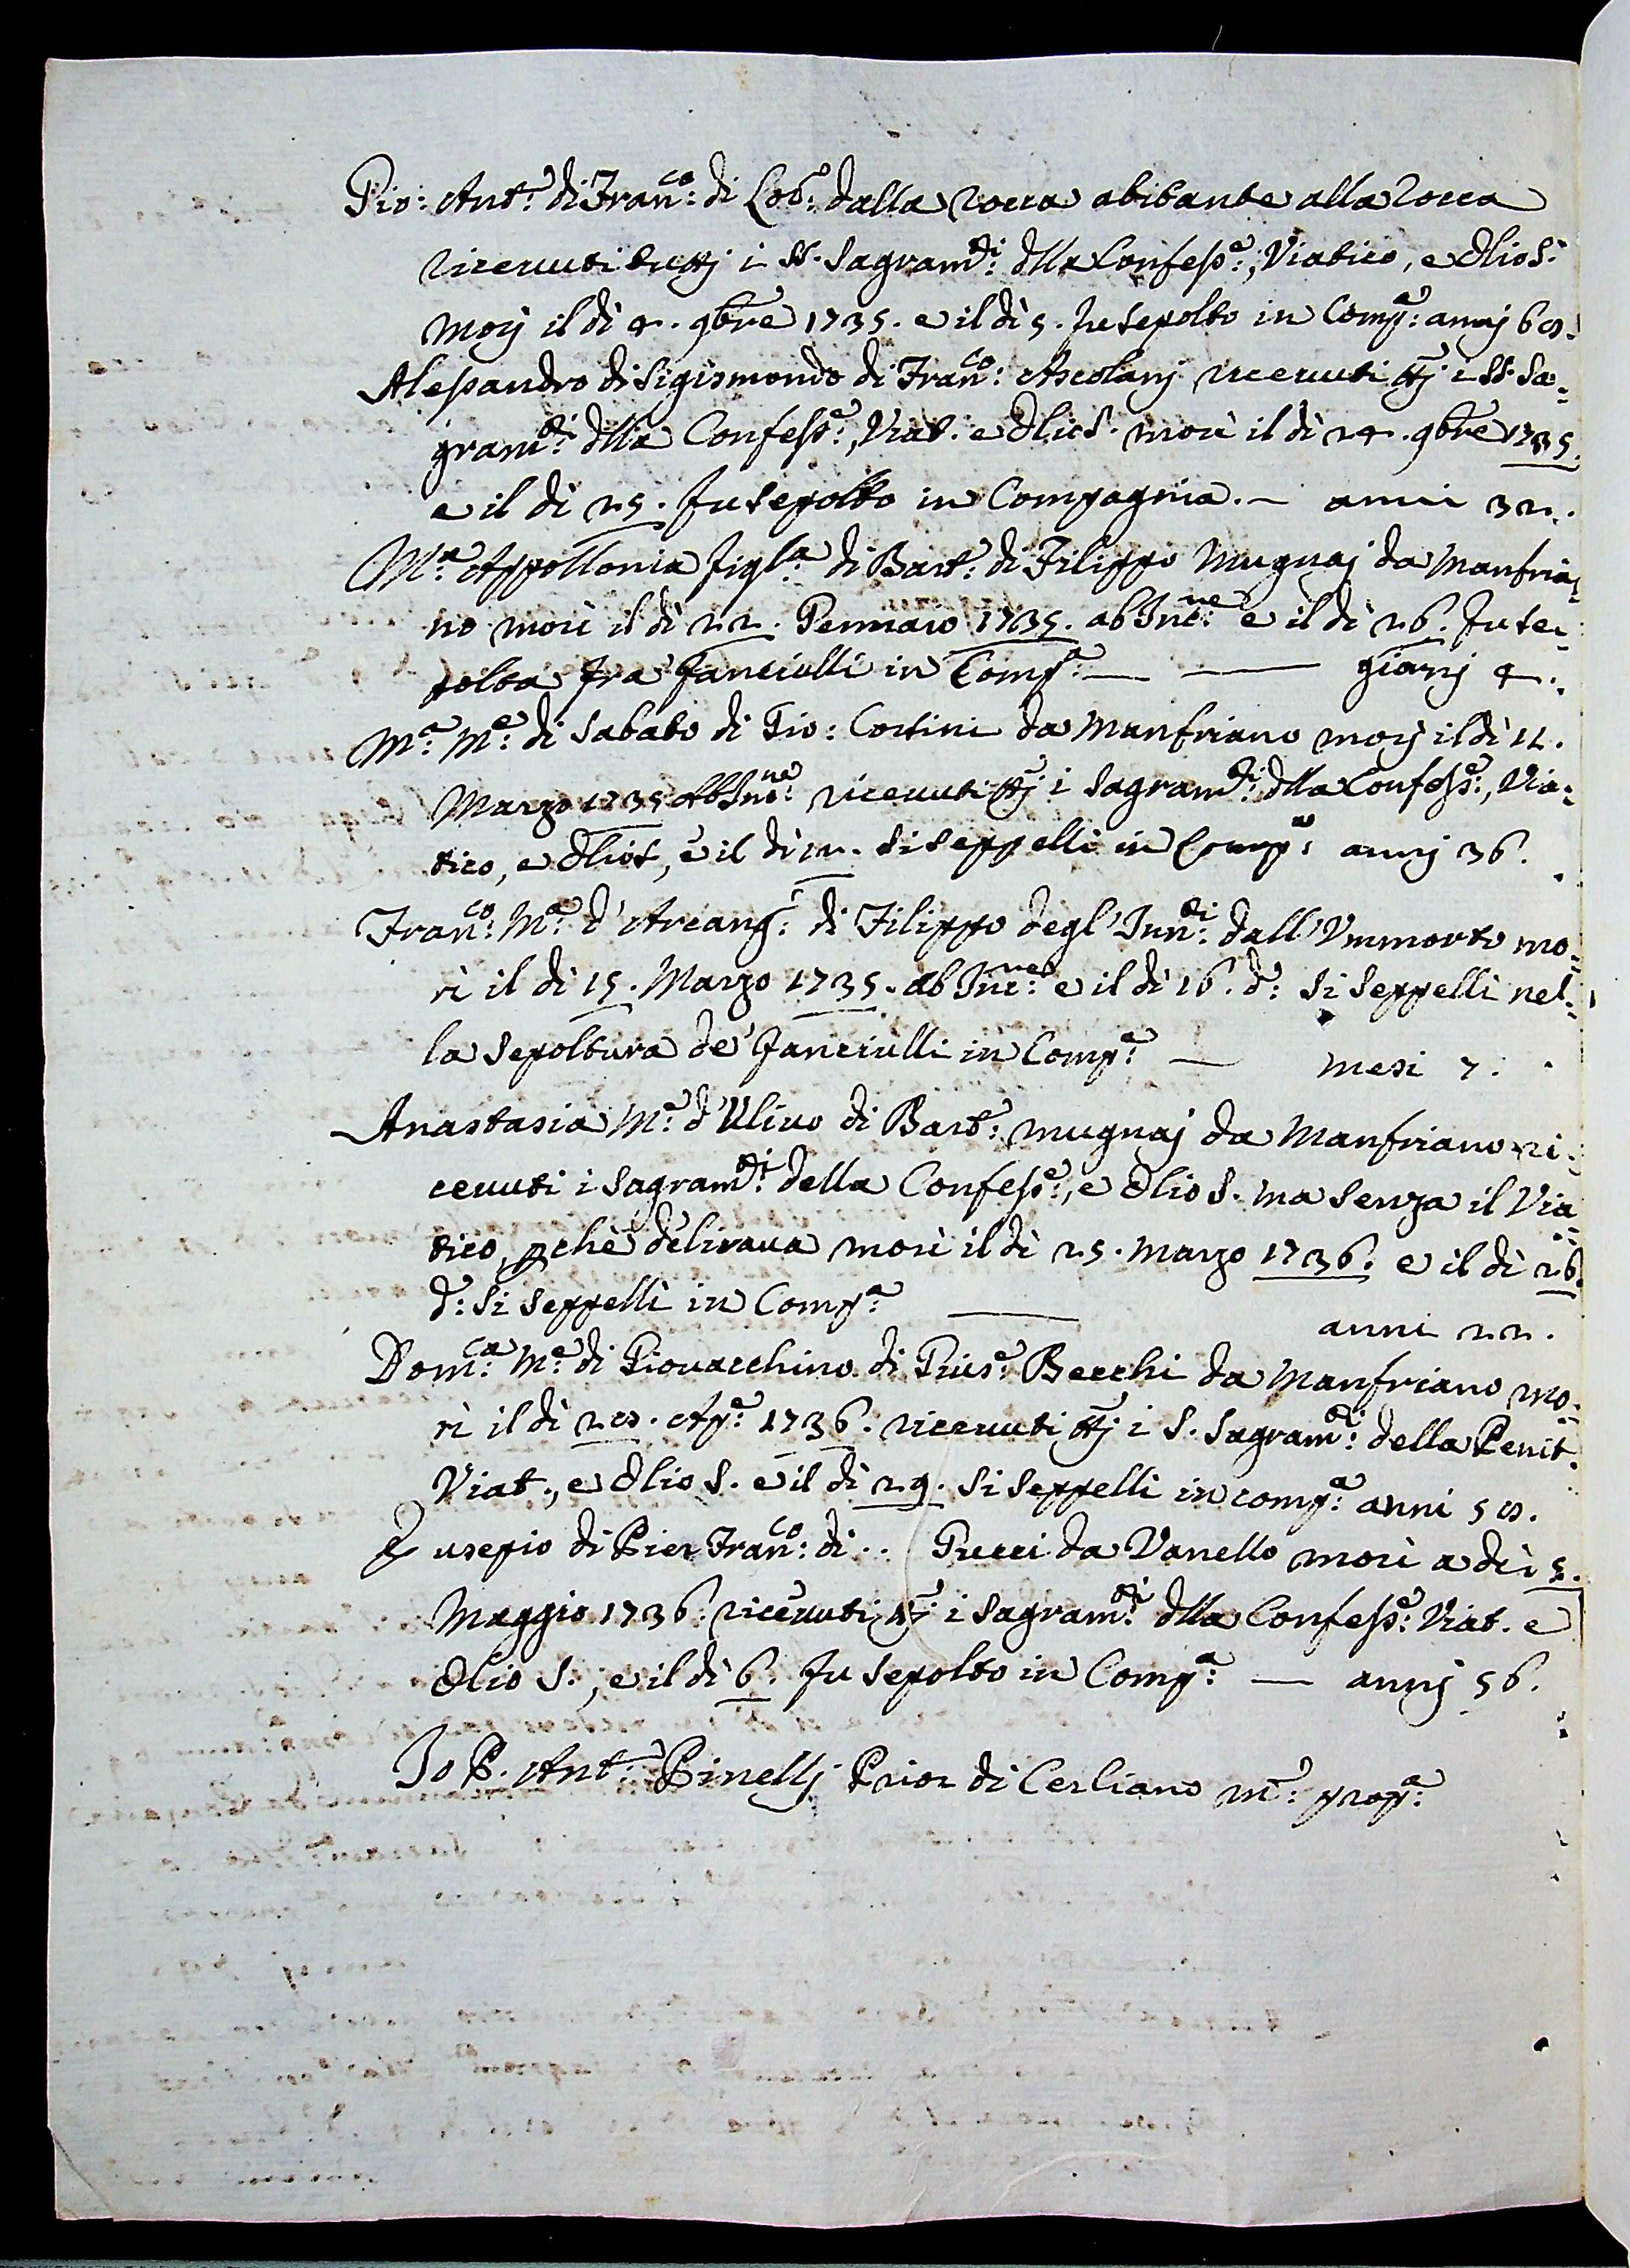 Gio: Ant.º di Fran.co: di Lor.º dalla Rocca abitante alla Rocca
ricevuti tuttj i SS. Sagram.ti: dlla Confess.e, Viatico, e Olio S.
morj il dì 4. 9bre 1735. e il dì 5. fu sepolto in Comp.a: annj 60.
Alessandro di Sigismondo di Fran.co: Ascolanj ricevuti ttj i SS. Sa=
gram.ti dlla Confess.e, Viat. e Olio S. morì il dì 24. 9bre 1735.
e il dì 25. fu sepolto in Compagnia. — anni 32.
M.a Appollonia figl.a di Bart.º: di Filippo Mugnaj da Manfria=
no morì il dì 22. Gennaio 1735. ab Inc.ne e il dì 26. fu se=
polta fra fanciulli in Comp.a — — giorni 4.
M.a M.e: di Sabato di Gio: Cortini da Manfriano morj il dì 11.
Marzo 1735 ab Inc.ne ricevuti ttj i Sagram.ti: dlla Confess.e, Via=
tico, e Olio S, e il dì 12. si seppellì in Comp.a: annj 36.
Fran.co: M.a d'Arcang.º: di Filippo degl'Inn.ti: dall'Ummorto mo=
rì il dì 15. Marzo 1735. ab Inc.ne: e il dì 16. d.º: si seppellì nel=
la sepoltura de' fanciulli in Comp.a — mesi 7.
Anastasia M.e d'Ulivo di Bart.º: mugnaj da Manfriano ri=
cevuti i Sagram.ti: della Confess.e, e Olio S. ma senza il Via=
tico, pche delirava morì il dì 25. Marzo 1736. e il dì 26.
d.º: si seppellì in Comp.a — anni 22.
Dom.ca: M.e di Giovacchino di Gius.e: Becchi da Manfriano mo=
rì il dì 28. Ap.e: 1736. ricevuti ttj i S. Sagram.ti: della Penit.
Viat., e Olio S. e il dì 29. si seppellì in comp.a: anni 50.
Giusepio di Pier Fran.co: di .. Pucci da Vanello morì a dì 5.
Maggio 1736. ricevuti ttj i Sagram.ti dlla Confess.e: Viat. e
Olio S., e il dì 6. fu sepolto in Comp.a: — annj 56.
Io P. Ant.º: Binellj Prior di Cerliano m.º: prop.a: